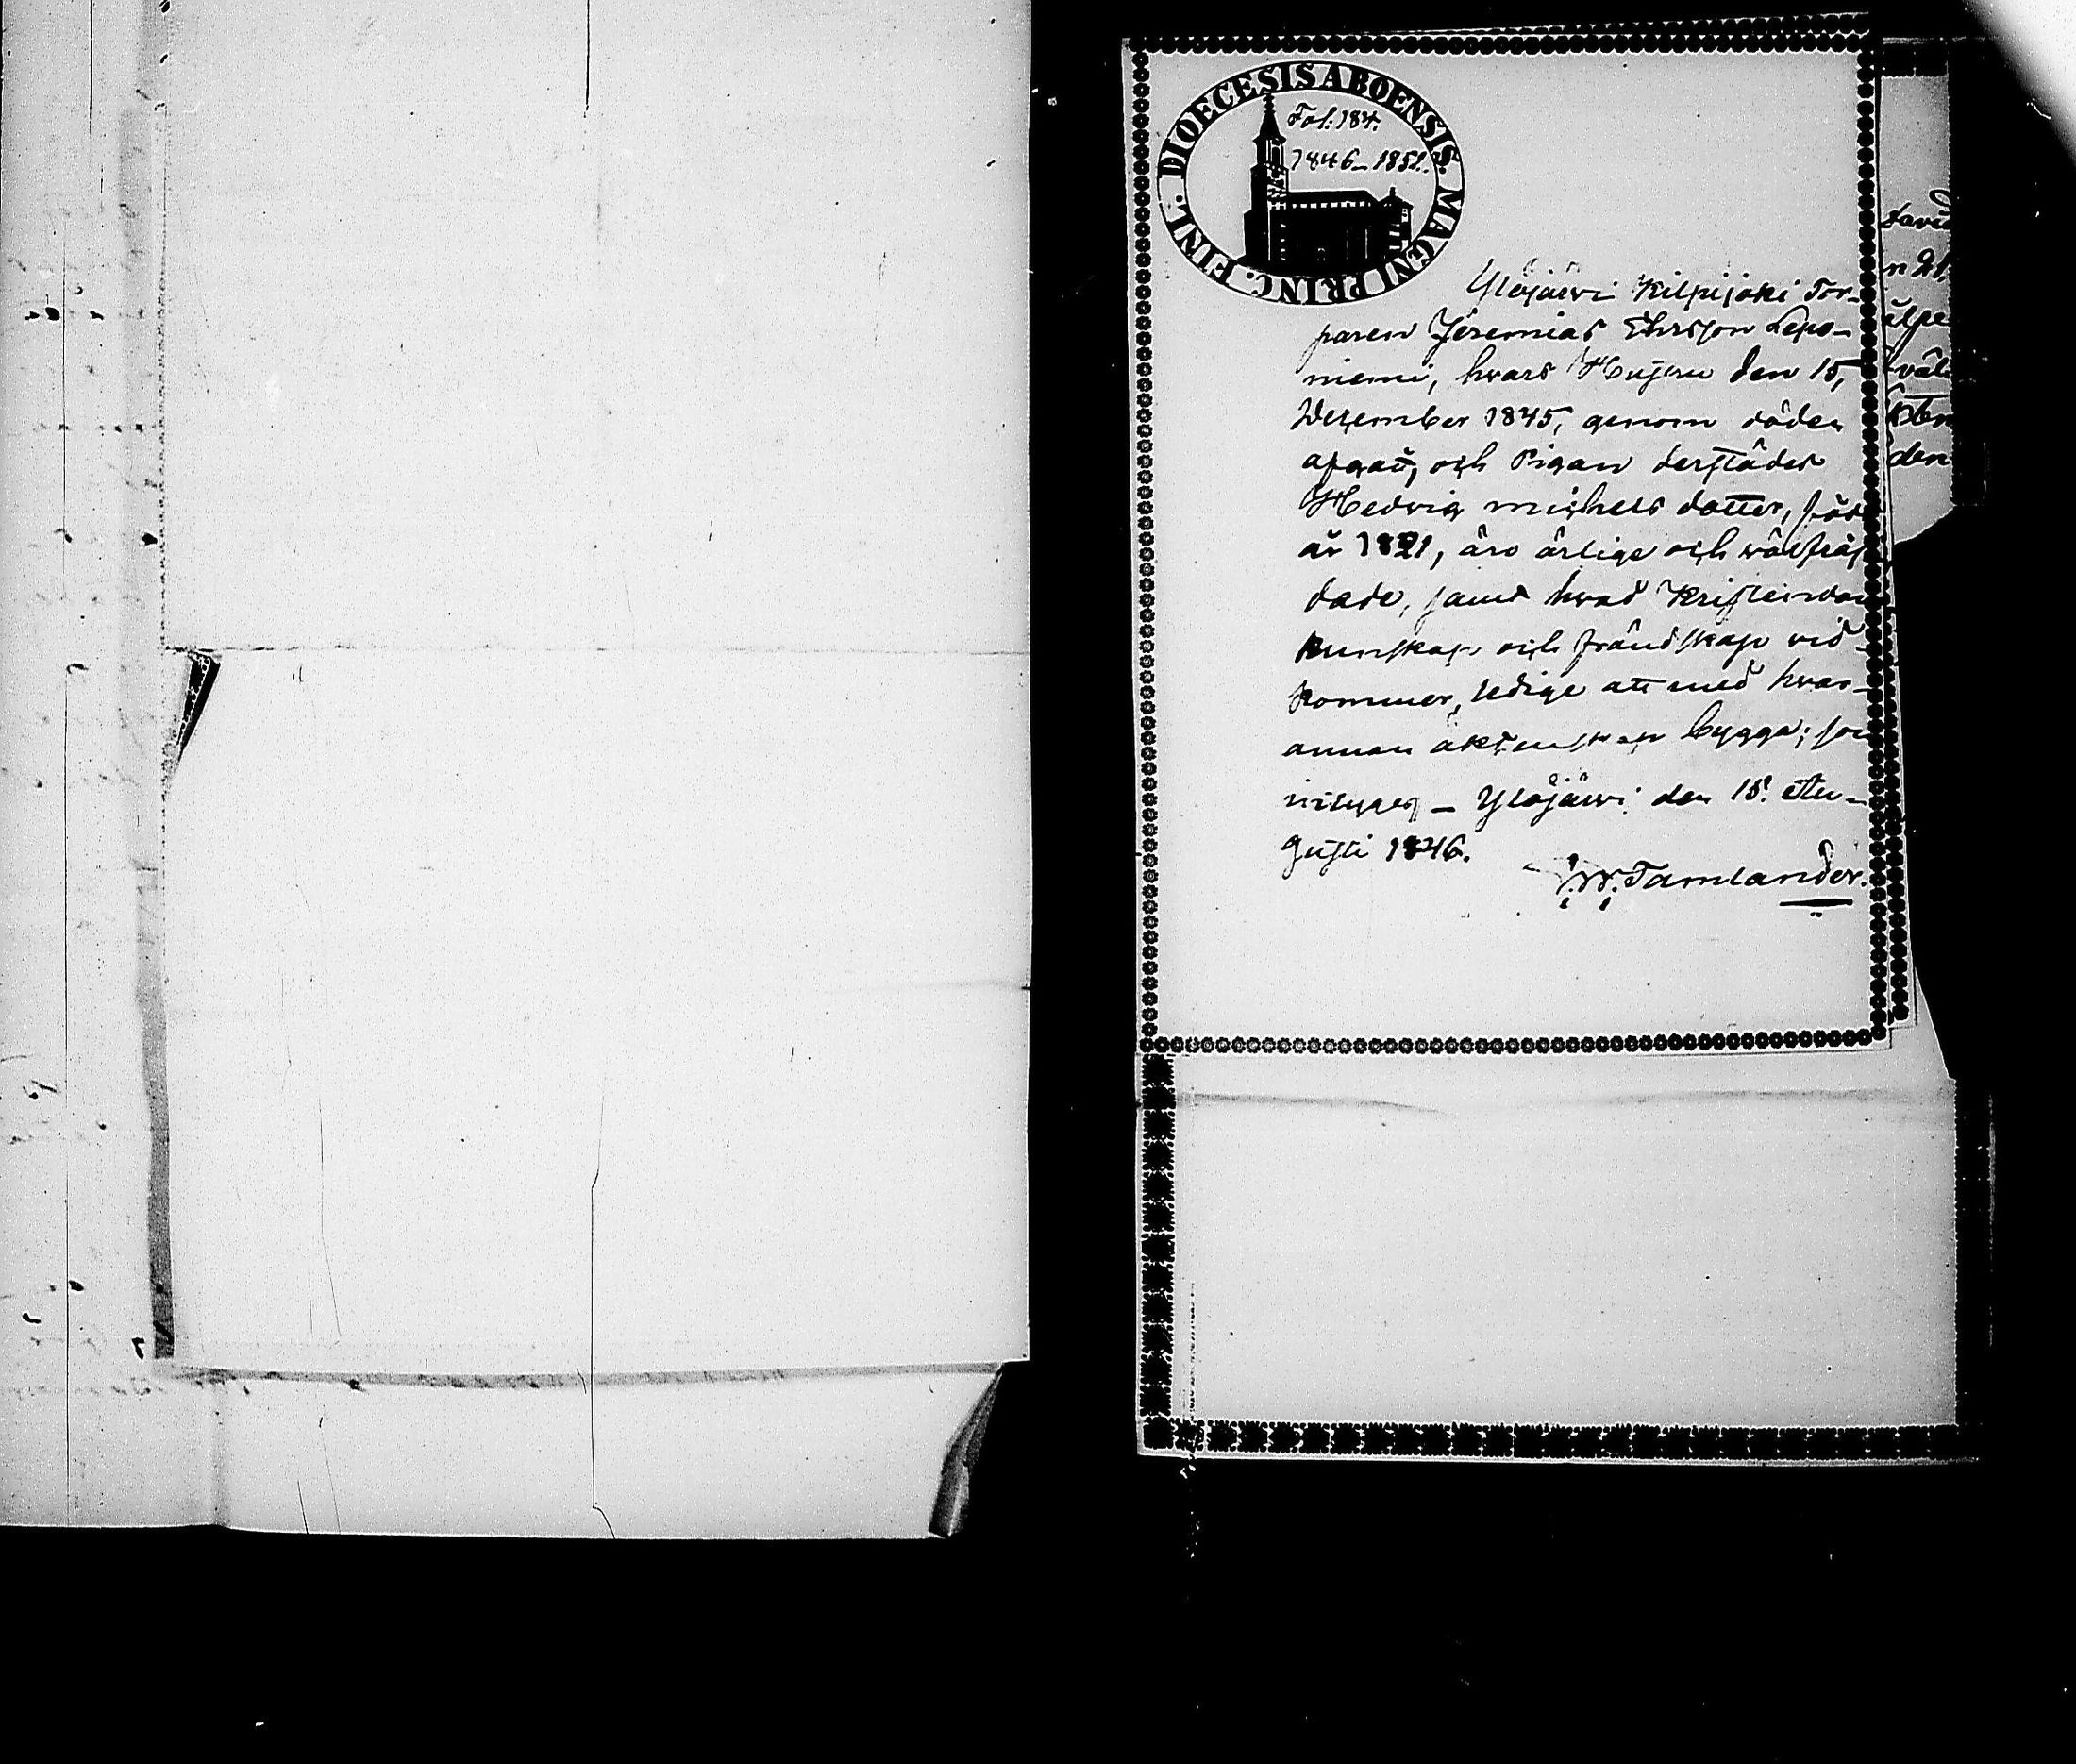 DIOECESIS ABOENSIS. MAGNI PRINC. FINL.
Fol: 184.
1846–1851.
Ylöjärvi Kilpijoki Tor-
paren Jeremias Ehrsson Lepo-
niemi, hvars Hustru den 15,
December 1845, genom döden
afgått, och Pigan derstädes
Hedvig michels dotter, född
år 1821, äro ärlige och välfräj
dade, samt hvad Kristendom
kunskap och frändskap vid-
kommer, ledige att med hvar-
annan äktenskap bygga; som
intygas – Ylöjärvi den 15. Au-
gusti 1846.
Tamlander.
n 21,
den